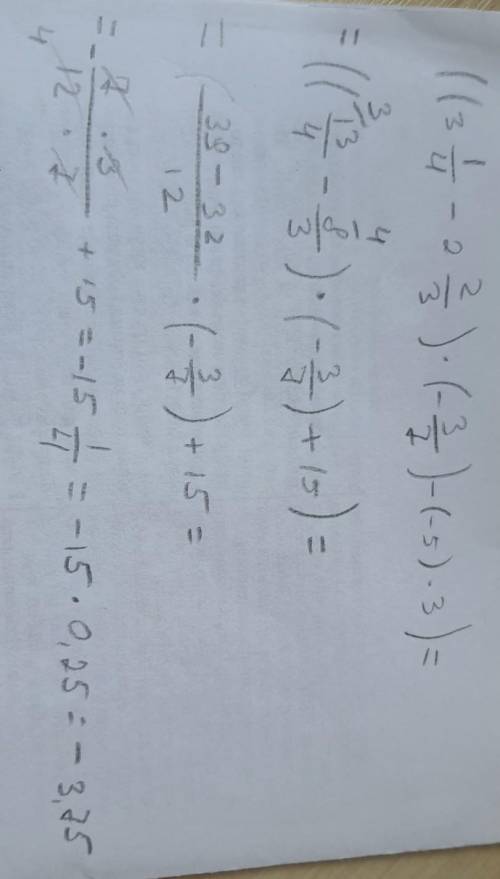 ((3 1/4 - 2 2/3) · (-3/7) - (-5) · 3) =
= ((13/4 ³ - 8/3 ⁴) · (-3/7) + 15) =
= (39 - 32)/12 · (-3/7) + 15 =
= - (7 · 3)/(12 · 7) 4 + 15 = -15 1/4 = -15 · 0,25 = -3,75